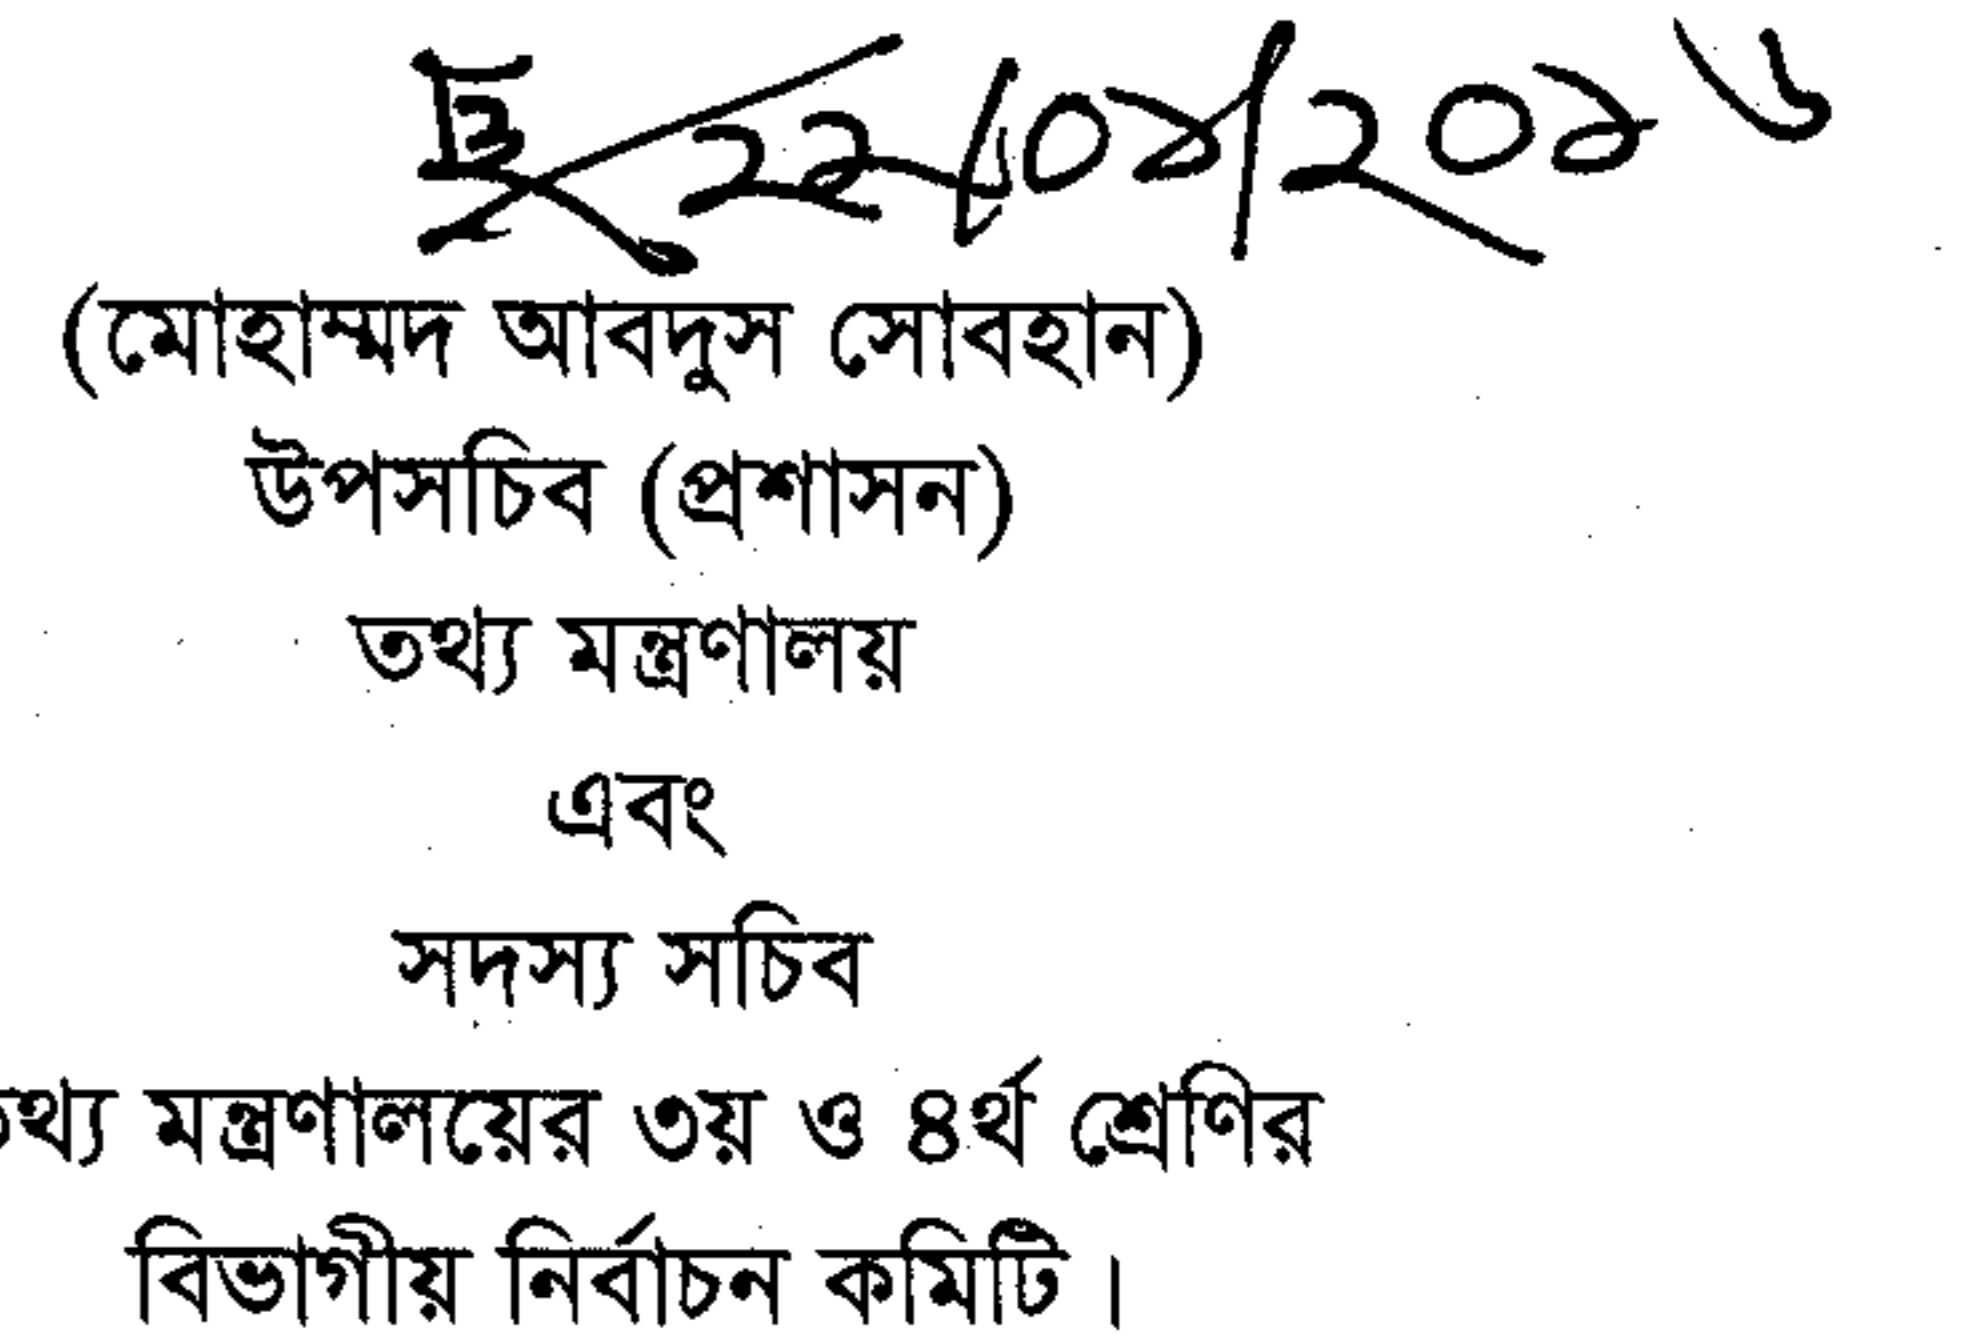 ২২/০৯/২০১৬
(মোহাম্মদ আবদুস সোবহান)
উপসচিব (প্রশাসন)
তথ্য মন্ত্রণালয়
এবং
সদস্য সচিব
তথ্য মন্ত্রণালয়ের ৩য় ও ৪র্থ শ্রেণির
বিভাগীয় নির্বাচন কমিটি।